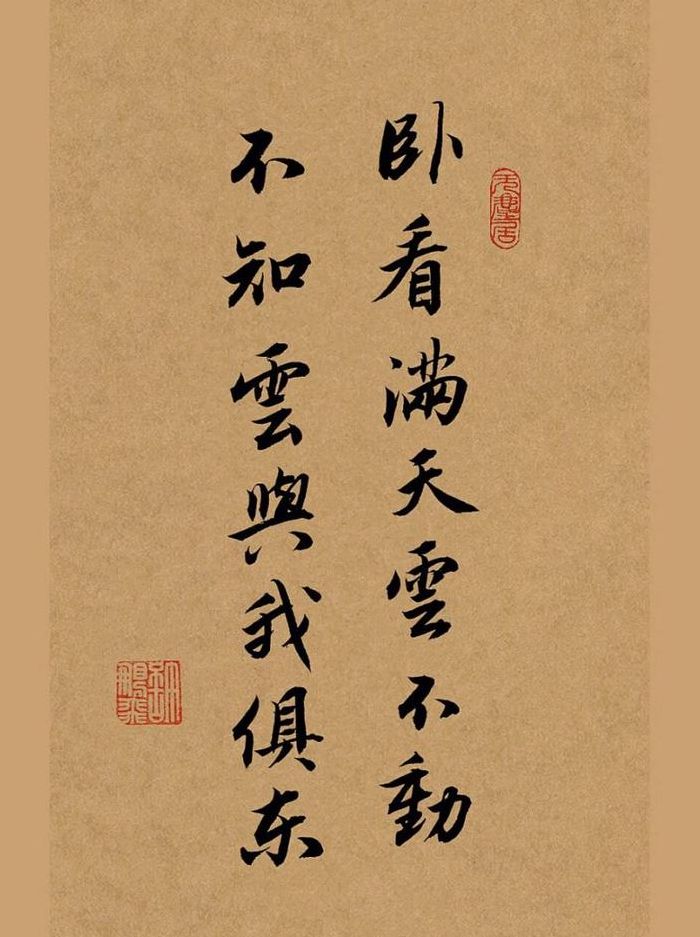 卧看满天雲不動
不知雲與我俱东